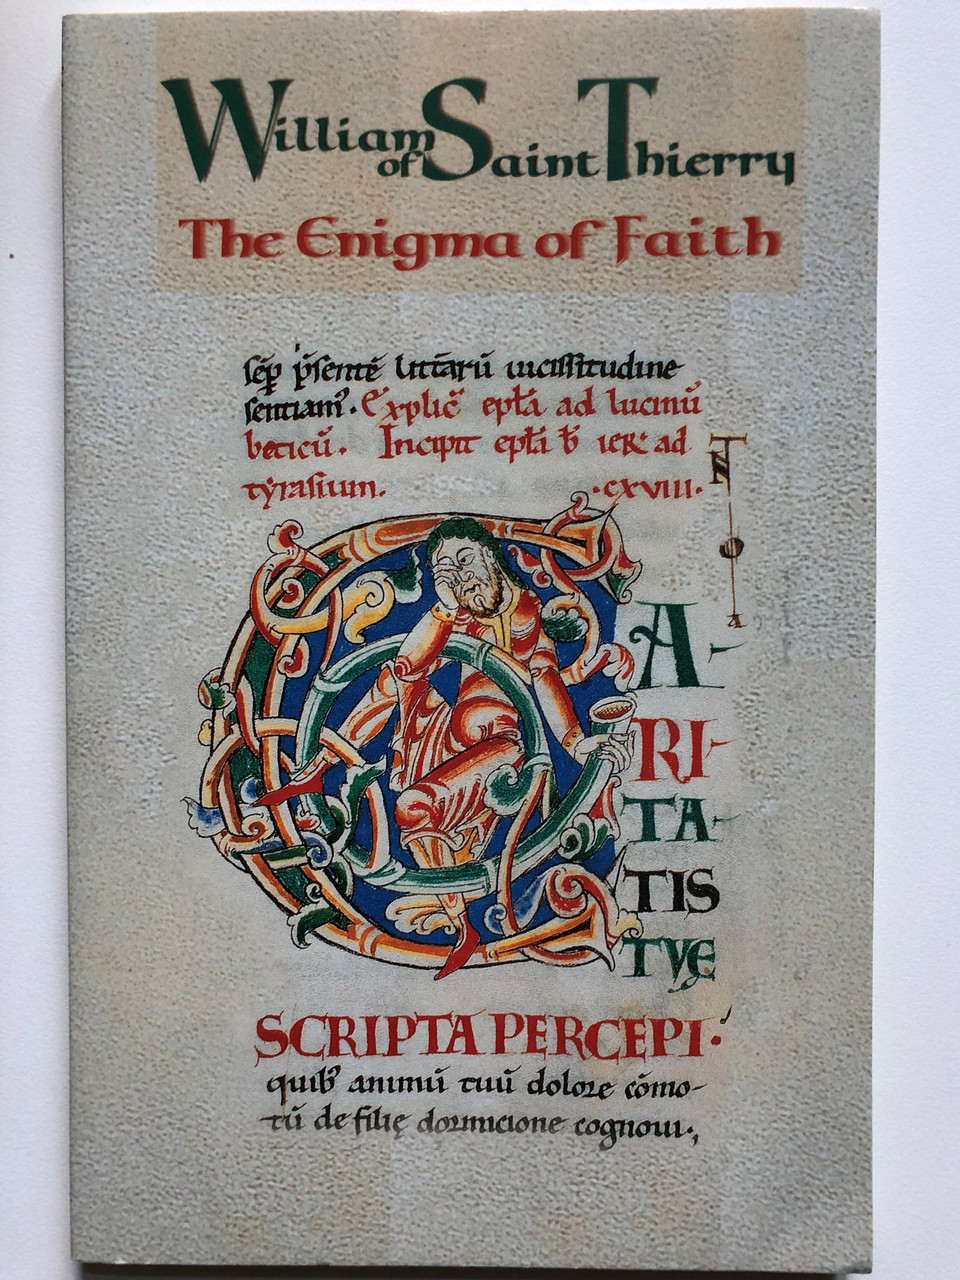 William
of Saint Thierry
The Enigma of Faith
sēp p̄sentē litt̄arū uicissitudine
sentiam᷒. Explic̄ ept̄a ad lucinū
beticū. Incipit ept̄a b̄ ier̄ ad
tyrasium. .cxviii.
A-
RI-
TA-
TIS
TVE
SCRIPTA PERCEPI.
quib᷒ animū tuū dolore cōmo-
tū de filię dormicione cognoui.,